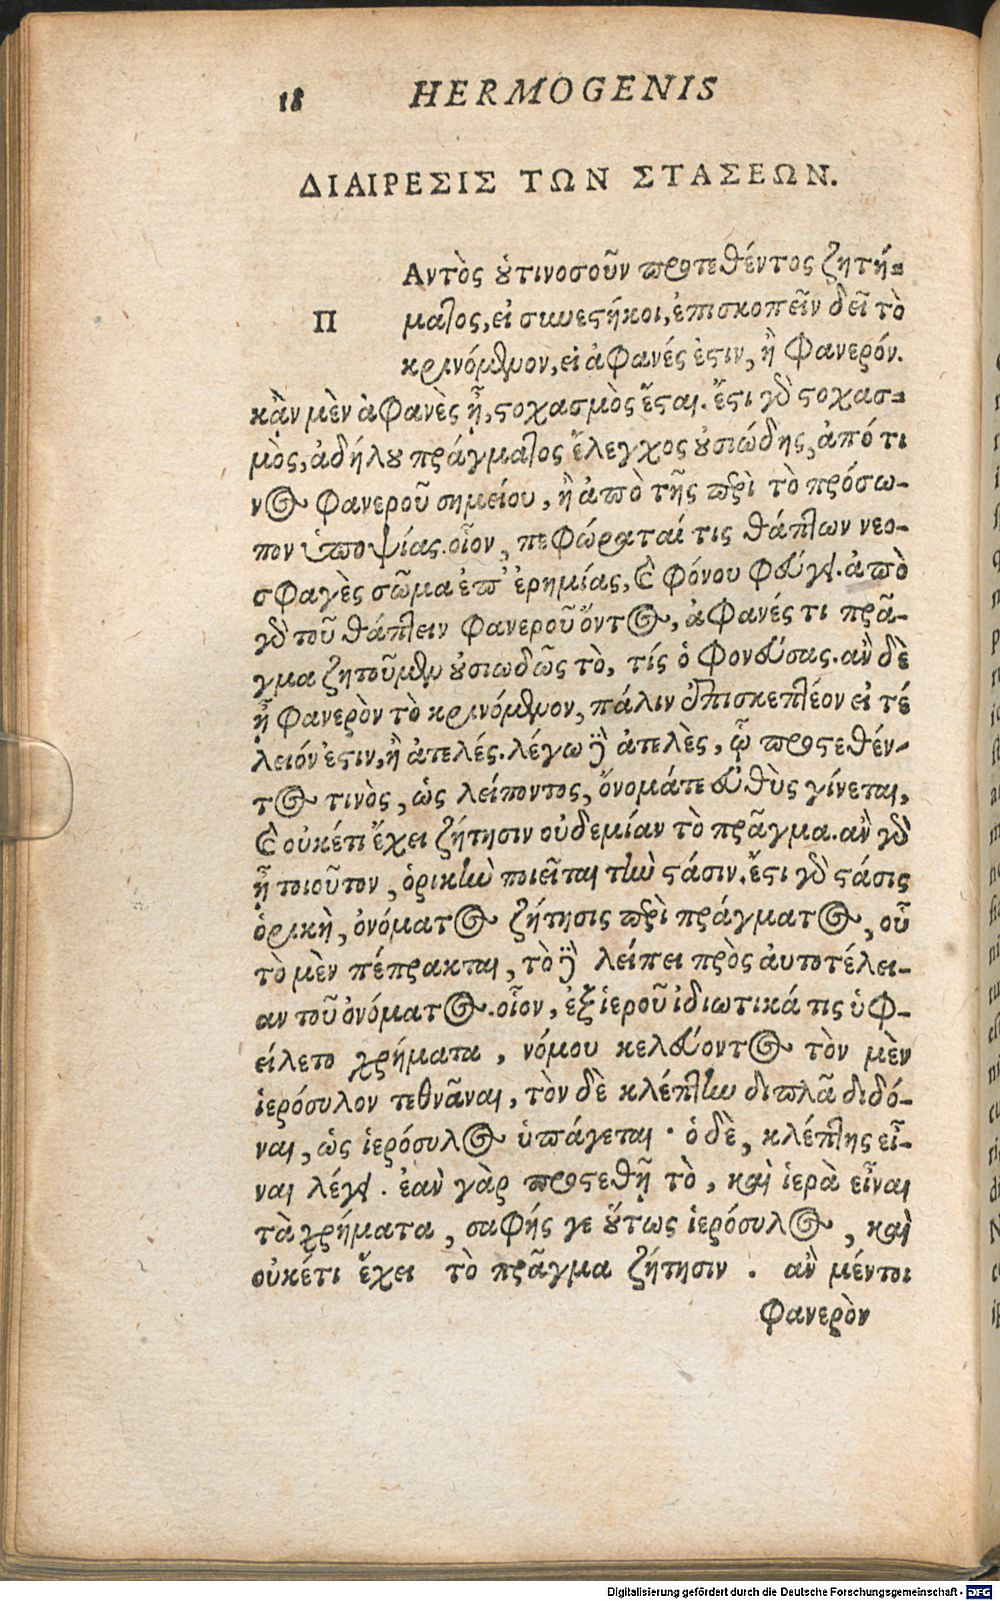 18 HERMOGENIS
ΔΙΑΙΡΕΣΙΣ ΤΩΝ ΣΤΑΣΕΩΝ.
Π
Αντὸς οὑτινοσοῦν προτεθέντος ζητή-
ματος, εἰ συνεστήκοι, ἐπισκοπεῖν δεῖ τὸ
κρινόμενον, εἰ ἀφανές ἐστιν, ἢ φανερόν.
κᾂν μὲν ἀφανὲς ᾖ, στοχασμὸς ἔσται. ἔστι γὰρ στοχασ-
μὸς, ἀδήλου πράγματος ἔλεγχος οὐσιώδης, ἀπό τι
νος φανεροῦ σημείου, ἢ ἀπὸ τῆς περὶ τὸ πρόσω-
πον ὑποψίας. οἷον, πεφώραταί τις θάπτων νεο-
σφαγὲς σῶμα ἐπ' ἐρημίας, καὶ φόνου φεύγει. ἀπὸ
γὰρ τοῦ θάπτειν φανεροῦ ὄντος, ἀφανές τι πρᾶ-
γμα ζητοῦμεν οὐσιωδῶς τὸ, τίς ὁ φονεύσας. ἂν δὲ
ᾖ φανερὸν τὸ κρινόμενον, πάλιν ἐπισκεπτέον εἰ τέ
λειόν ἐστιν, ἢ ἀτελές. λέγω δὲ ἀτελὲς, ᾧ προστεθέν-
τος τινὸς, ὡς λείποντος, ὄνομά τε εὐθὺς γίνεται,
καὶ οὐκέτι ἔχει ζήτησιν οὐδεμίαν τὸ πρᾶγμα. ἂν γὰρ
ᾖ τοιοῦτον, ὁρικὴν ποιεῖται τὴν στάσιν. ἔστι γὰρ στάσις
ὁρικὴ, ὀνόματος ζήτησις περὶ πράγματος, οὗ
τὸ μὲν πέπρακται, τὸ δὲ λείπει πρὸς αὐτοτέλει-
αν τοῦ ὀνόματος. οἷον, ἐξ ἱεροῦ ἰδιωτικά τις ὑφ-
είλετο χρήματα, νόμου κελεύοντος τὸν μὲν
ἱερόσυλον τεθνᾶναι, τὸν δὲ κλέπτην διπλᾶ διδό-
ναι, ὡς ἱερόσυλος ὑπάγεται · ὁ δὲ, κλέπτης εἶ-
ναι λέγει. ἐὰν γὰρ προστεθῇ τὸ, καὶ ἱερὰ εἶναι
τὰ χρήματα, σαφής γε οὕτως ἱερόσυλος, καὶ
οὐκέτι ἔχει τὸ πρᾶγμα ζήτησιν. ἂν μέντοι
φανερὸν
Digitalisierung gefördert durch die Deutsche Forschungsgemeinschaft - DFG